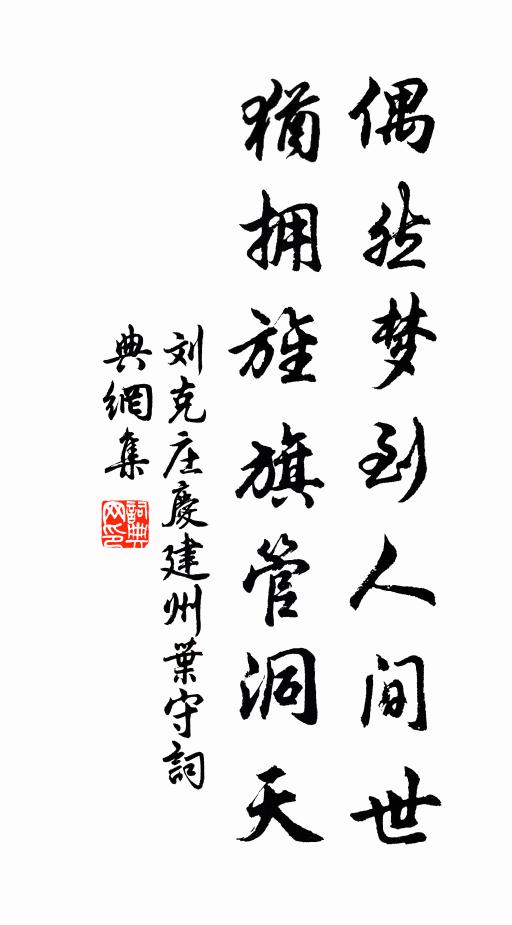 偶然梦到人间世
犹拥旌旗管洞天
刘克庄慶建州葉守詞
典網集
詞典网印